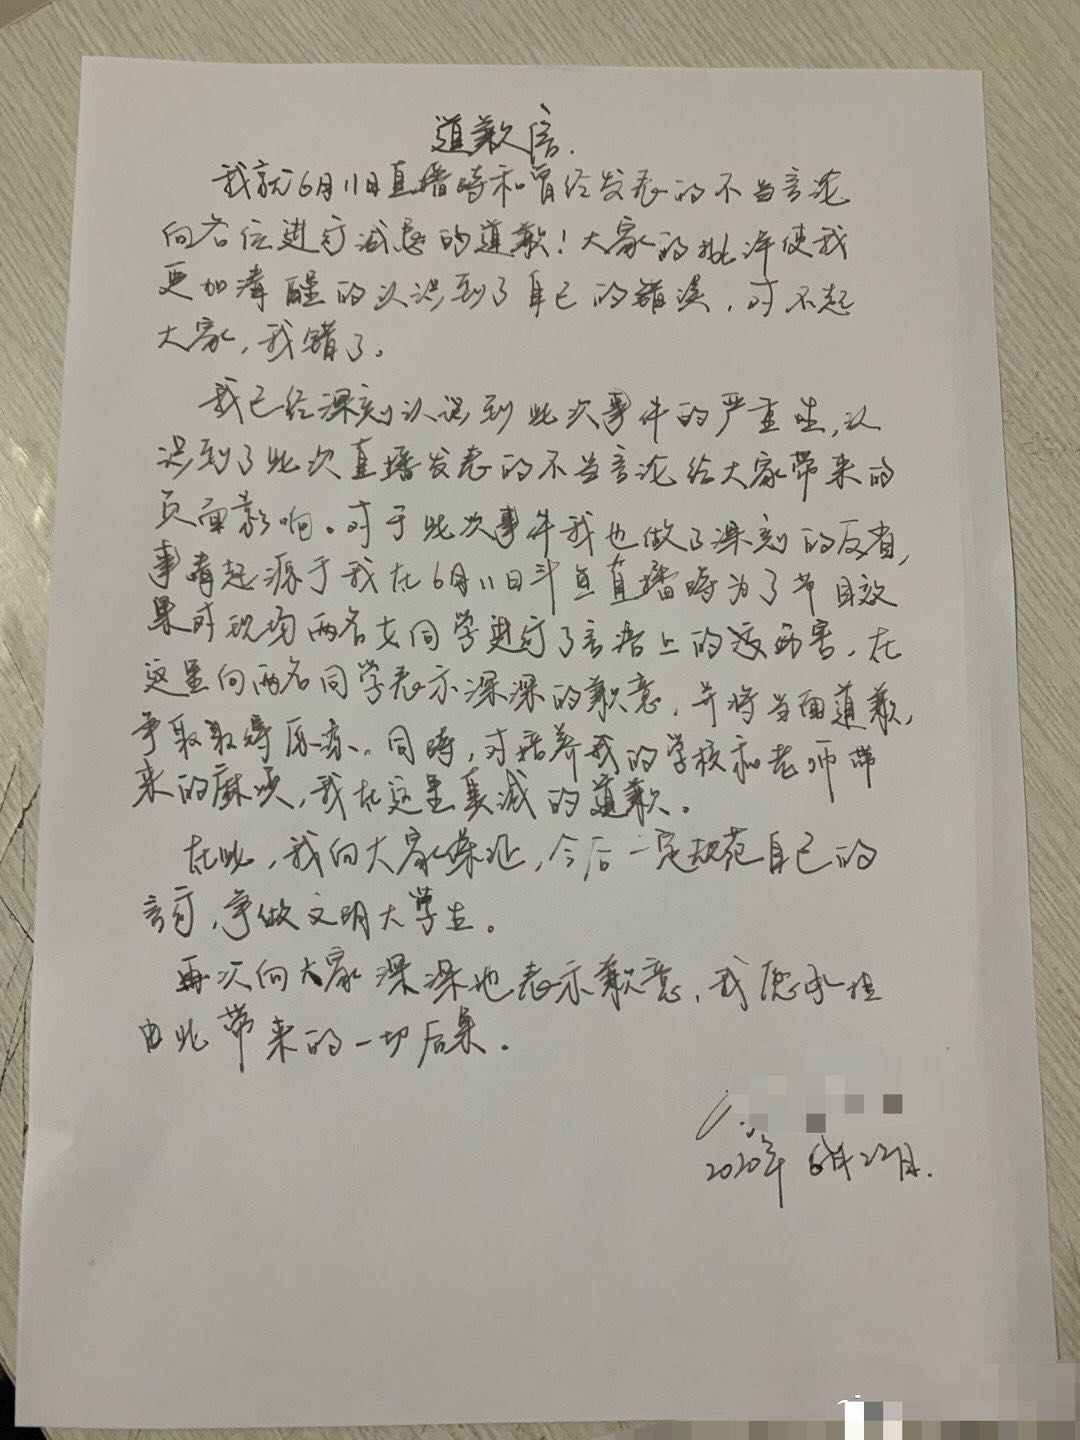 道歉信.
我就6月11日直播时和曾经发表的不当言论
向各位进行诚恳的道歉！大家的批评使我
更加清醒的认识到了自己的错误，对不起
大家，我错了。
我已经深刻认识到此次事件的严重性，认
识到了此次直播发表的不当言论给大家带来的
负面影响。对于此次事件我也做了深刻的反省，
事情起源于我在6月11日斗鱼直播时为了节目效
果对现场两名女同学进行了言语上的伤害，在
这里向两名同学表示深深的歉意，并将当面道歉，
争取取得原谅。同时，对培养我的学校和老师带
来的麻烦，我在这里真诚的道歉。
在此，我向大家保证，今后一定规范自己的
言行，争做文明大学生。
再次向大家深深地表示歉意，我愿承担
由此带来的一切后果。
2020年6月22日.